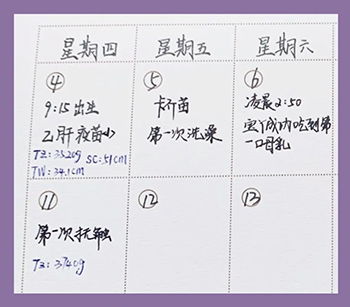 星期四 星期五 星期六
④ ⑤ ⑥
9:15出生
乙肝疫苗
TZ: 3320g SC: 51cm
TW: 34.1cm
卡介苗
第一次洗澡
凌晨2:50
宝丫成功吃到第
一口母乳
⑪ ⑫ ⑬
第一次抚触
TZ: 3740g